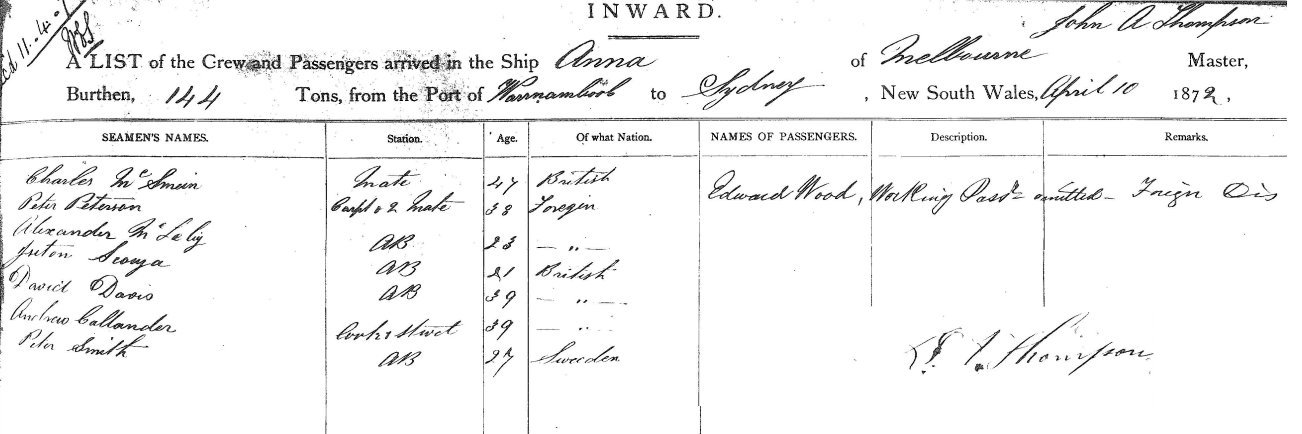 INWARD.
John A Thompson
11.4.
A LIST of the Crew and Passengers arrived in the Ship Anna of Melbourne Master,
Burthen, 144 Tons, from the Port of Warrnambool to Sydney, New South Wales, April 10 1872,
SEAMEN'S NAMES. Station. Age. Of what Nation. NAMES OF PASSENGERS. Description. Remarks.
Charles Mate 47 British Edward Wood, Working omitted
Peter Peterson 2 Mate 38 Foregin
Alexander AB 23 — " —
AB 21 British
David Davis AB 39 — " —
Andrew Callander Cook & 39 — " —
Peter Smith AB 27 Sweeden
Thompson